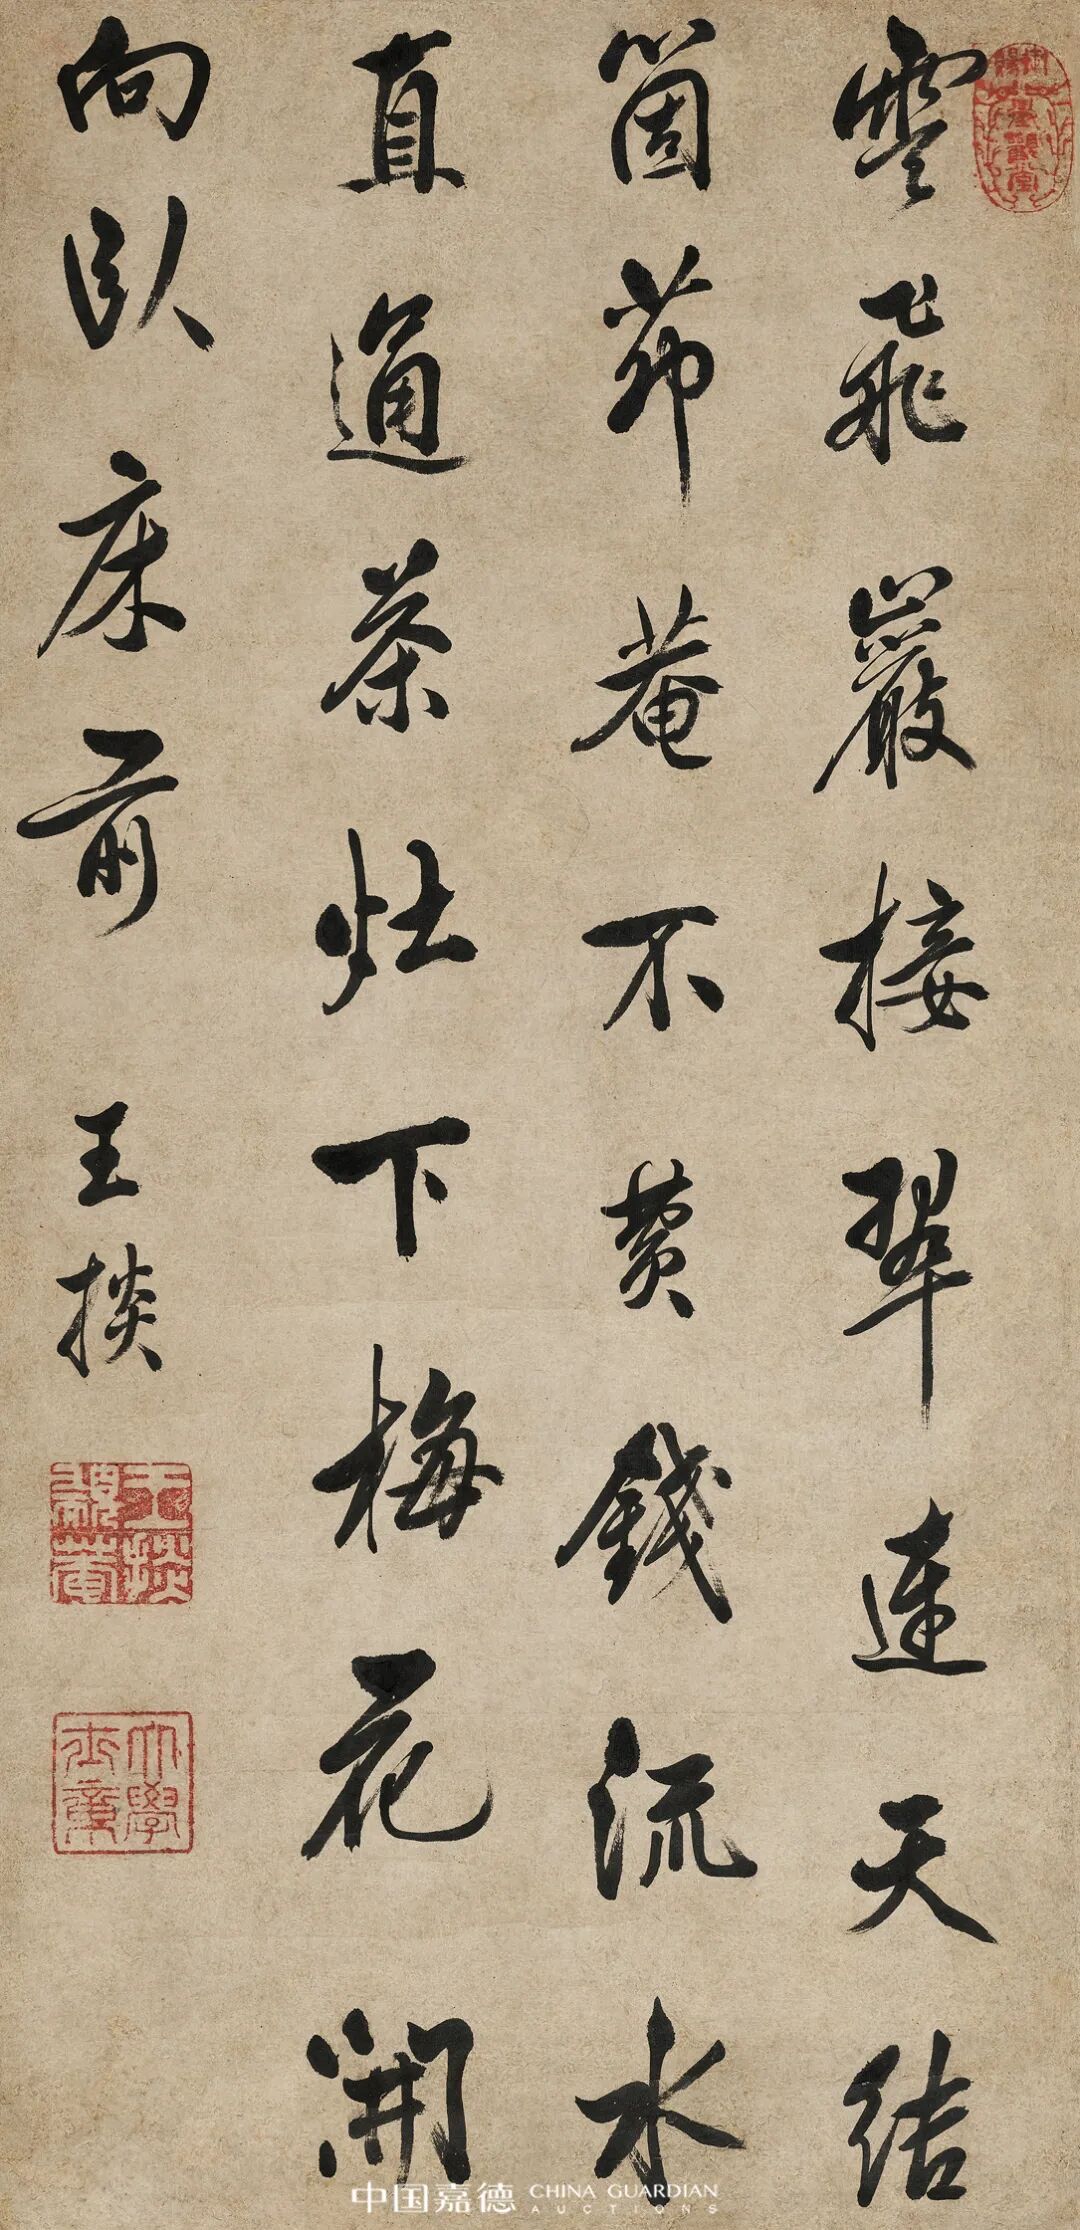 雲飛巖接翠連天結
箇茆菴不費錢流水
直通茶灶下梅花開
向臥床前
王掞
大學士章
中国嘉德 CHINA GUARDIAN
AUCTIONS